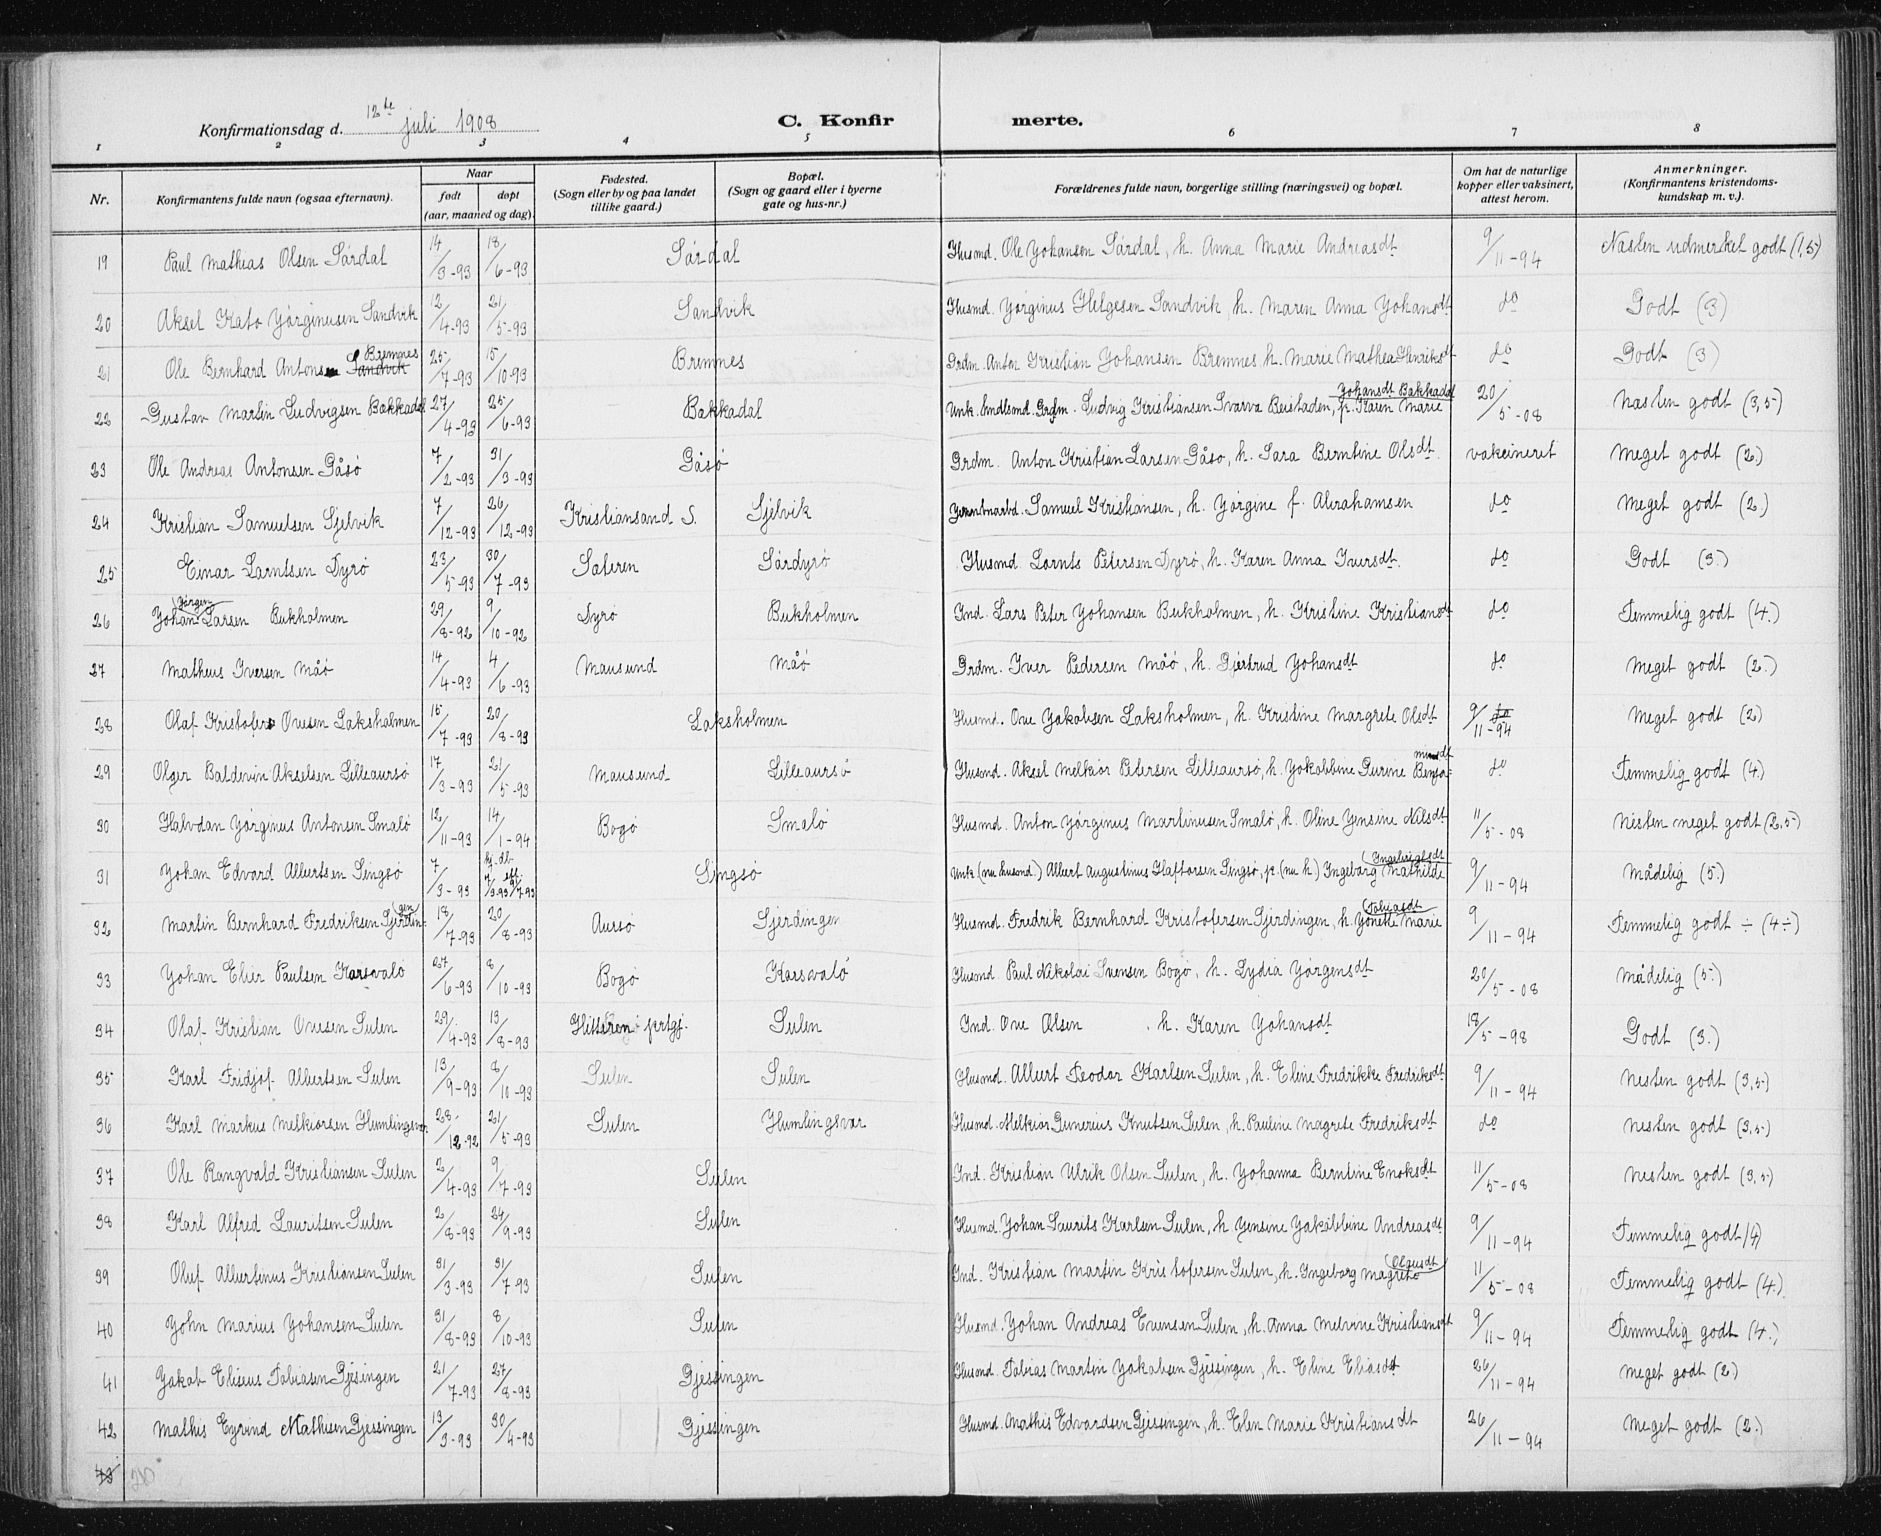 Konfirmationsdag d. 12te juli 1908 C. Konfirmerte.
1 2 3 4 5 6 7 8
Nr. Konfirmantens fulde navn (ogsaa efternavn). Naar født døpt (aar, maaned og dag). Fødested. (Sogn eller by og paa landet tillike gaard.) Bopæl. (Sogn og gaard eller i byerne gate og hus-nr.) Forældrenes fulde navn, borgerlige stilling (næringsvei) og bopæl. Om hat de naturlige kopper eller vaksinert, attest herom. Anmerkninger. (Konfirmantens kristendoms-kundskap m. v.).
19 Paul Mathias Olsen Sørdal 14/3-93 18/6-93 Sørdal Husmd. Ole Yohansen Sørdal, h. Anna Marie Andreasdt 9/11-94 Næsten udmerket godt (1,5)
20 Aksel Kato Yørginusen Sandvik 12/4-93 21/5-93 Sandvik Husmd. Yørginus Helgesen Sandvik, h. Maren Anna Yohansdt do Godt (3)
21 Ole Bernhard Antonsen Sandvik Bremnes 25/7-93 15/10-93 Bremnes Grdm. Anton Kristian Yohansen Bremnes h. Marie Mathea Henriksdt do Godt (3)
22 Gustav Martin Ludvigsen Bakkadal 27/4-93 25/6-93 Bakkadal Unk. Grdm. Ludvig Kristiansen Svarva Beistaden, p. Karen Marie Yohansdt Bakkadal 20/5-08 Næsten godt (3,5)
23 Ole Andreas Antonsen Gåsø 7/2-93 31/3-93 Gåsø Grdm. Anton Kristian Larsen Gåsø, h. Sara Berntine Olsdt. vakcineret Meget godt (2)
24 Kristian Samuelsen Sjelvik 7/12-93 26/12-93 Kristiansand S. Sjelvik Samuel Kristiansen, h. Yørgine f. Abrahamsen do Meget godt (2.)
25 Einar Larntsen Dyrø 23/5-93 30/7-93 Sateren Sørdyrø Husmd. Lornts Petersen Dyrø, h. Karen Anna Iversdt. do Godt (3.)
26 Yohan Yørgen Larsen Bukholmen 29/8-92 9/10-92 Dyrø Bukholmen Ind. Lars Peter Yohansen Bukholmen, h. Kristine Kristiansdt do Temmelig godt (4.)
27 Matheus Iversen Måø 14/4-93 4/6-93 Mausund Måø Grdm. Iver Pedersen Måø, h. Gjertrud Yohansdt do Meget godt (2.)
28 Olaf Kristofer Ovesen Laksholmen 15/7-93 20/8-93 Laksholmen Husmd. Ove Yakobsen Laksholmen, h. Kristine Margrete Olsdt 9/11-94 do Meget godt (2)
29 Olger Baldevin Akselsen Lilleaursø 17/3-93 21/5-93 Mausund Lilleaursø Husmd. Aksel Melkior Petersen Lilleaursø, h. Yakobbine Gurine Benja=minsdt do Temmelig godt (4.)
30 Halvdan Yørginus Antonsen Smalø 12/11-93 14/1-94 Bogø Smalø Husmd. Anton Yørginus Martinusen Smalø, h. Oline Yensine Nilsdt 11/5-08 Nesten meget godt (2,5)
31 Yohan Edvard Albertsen Singsø 7/3-93 hj. db. 7/3-93 9/7-93 Singsø Unk (nu husmd.) Albert Augustinus Haftorsen Singsø, p. (nu h.) Ingeborg Mathilde Ingebrigtsdt 9/11-94 Mådelig (5.)
32 Martin Bernhard Fredriksen Sjerdin=gen 18/7-93 20/8-93 Aursø Sjerdingen Husmd. Fredrik Bernhard Kristofersen Sjerdingen, h. Yonette Marie Tobiasdt 9/11-94 Temmelig godt ÷ (4÷)
33 Yohan Elier Paulsen Karsvalø 27/6-93 8/10-93 Bogø Karsvalø Husmd. Paul Nikolai Svensen Bogø, h. Lydia Yørgensdt 20/5-08 Mådelig (5.)
34 Olaf Kristian Ovesen Sulen 29/4-93 13/8-93 Hitteren prtgj. Sulen Ind. Ove Olsen h. Karen Yohansdt 18/5-98 Godt (3.)
35 Karl Fridjof Albertsen Sulen 13/9-93 8/10-93 Sulen Sulen Husmd. Albert Teodor Karlsen Sulen, h. Eline Fredrikke Fredriksdt 9/11-94 Nesten godt (3,5)
36 Karl Markus Melkiorsen Humlingsvær. 28/12-92 21/5-93 Sulen Humlingsvær Husmd. Melkior Gunerius Knutsen Sulen, h. Pauline Magrete Fredriksdt do Nesten godt (3,5)
37 Ole Rangvald Kristiansen Sulen 2/4-93 9/7-93 Sulen Ind. Kristian Ulrik Olsen Sulen, h. Yohanna Berntine Enoksdt 11/5-08 Nesten godt (3,5)
38 Karl Alfred Lauritsen Sulen 2/8-93 24/9-93 Sulen Husmd. Yohan Laurits Karlsen Sulen, h Yensine Yakobbine Andreasdt 9/11-94 Temmelig godt (4)
39 Oluf Albertinus Kristiansen Sulen 31/3-93 31/7-93 Sulen Ind. Kristian Martin Kristofersen Sulen, h. Ingeborg Magrete Olausdt 11/5-08 Temmelig godt (4.)
40 Yohn Marius Yohansen Sulen 31/8-93 8/10-93 Sulen Husmd. Yohan Andreas Evensen Sulen, h. Anna Melvine Kristiansdt 9/11-94 Temmelig godt (4.)
41 Yakob Eliseus Tobiasen Gjesingen 21/7-93 27/8-93 Gjessingen Husmd. Tobias Martin Yakobsen Gjessingen, h. Eline Eliasdt 26/11-94 Meget godt (2)
42 Mathis Eyvind Mathisen Gjessingen 13/3-93 30/4-93 Gjessingen Husmd. Mathis Edvardsen Gjessingen, h. Elen Marie Kristiansdt 26/11-94 Meget godt (2.)
43